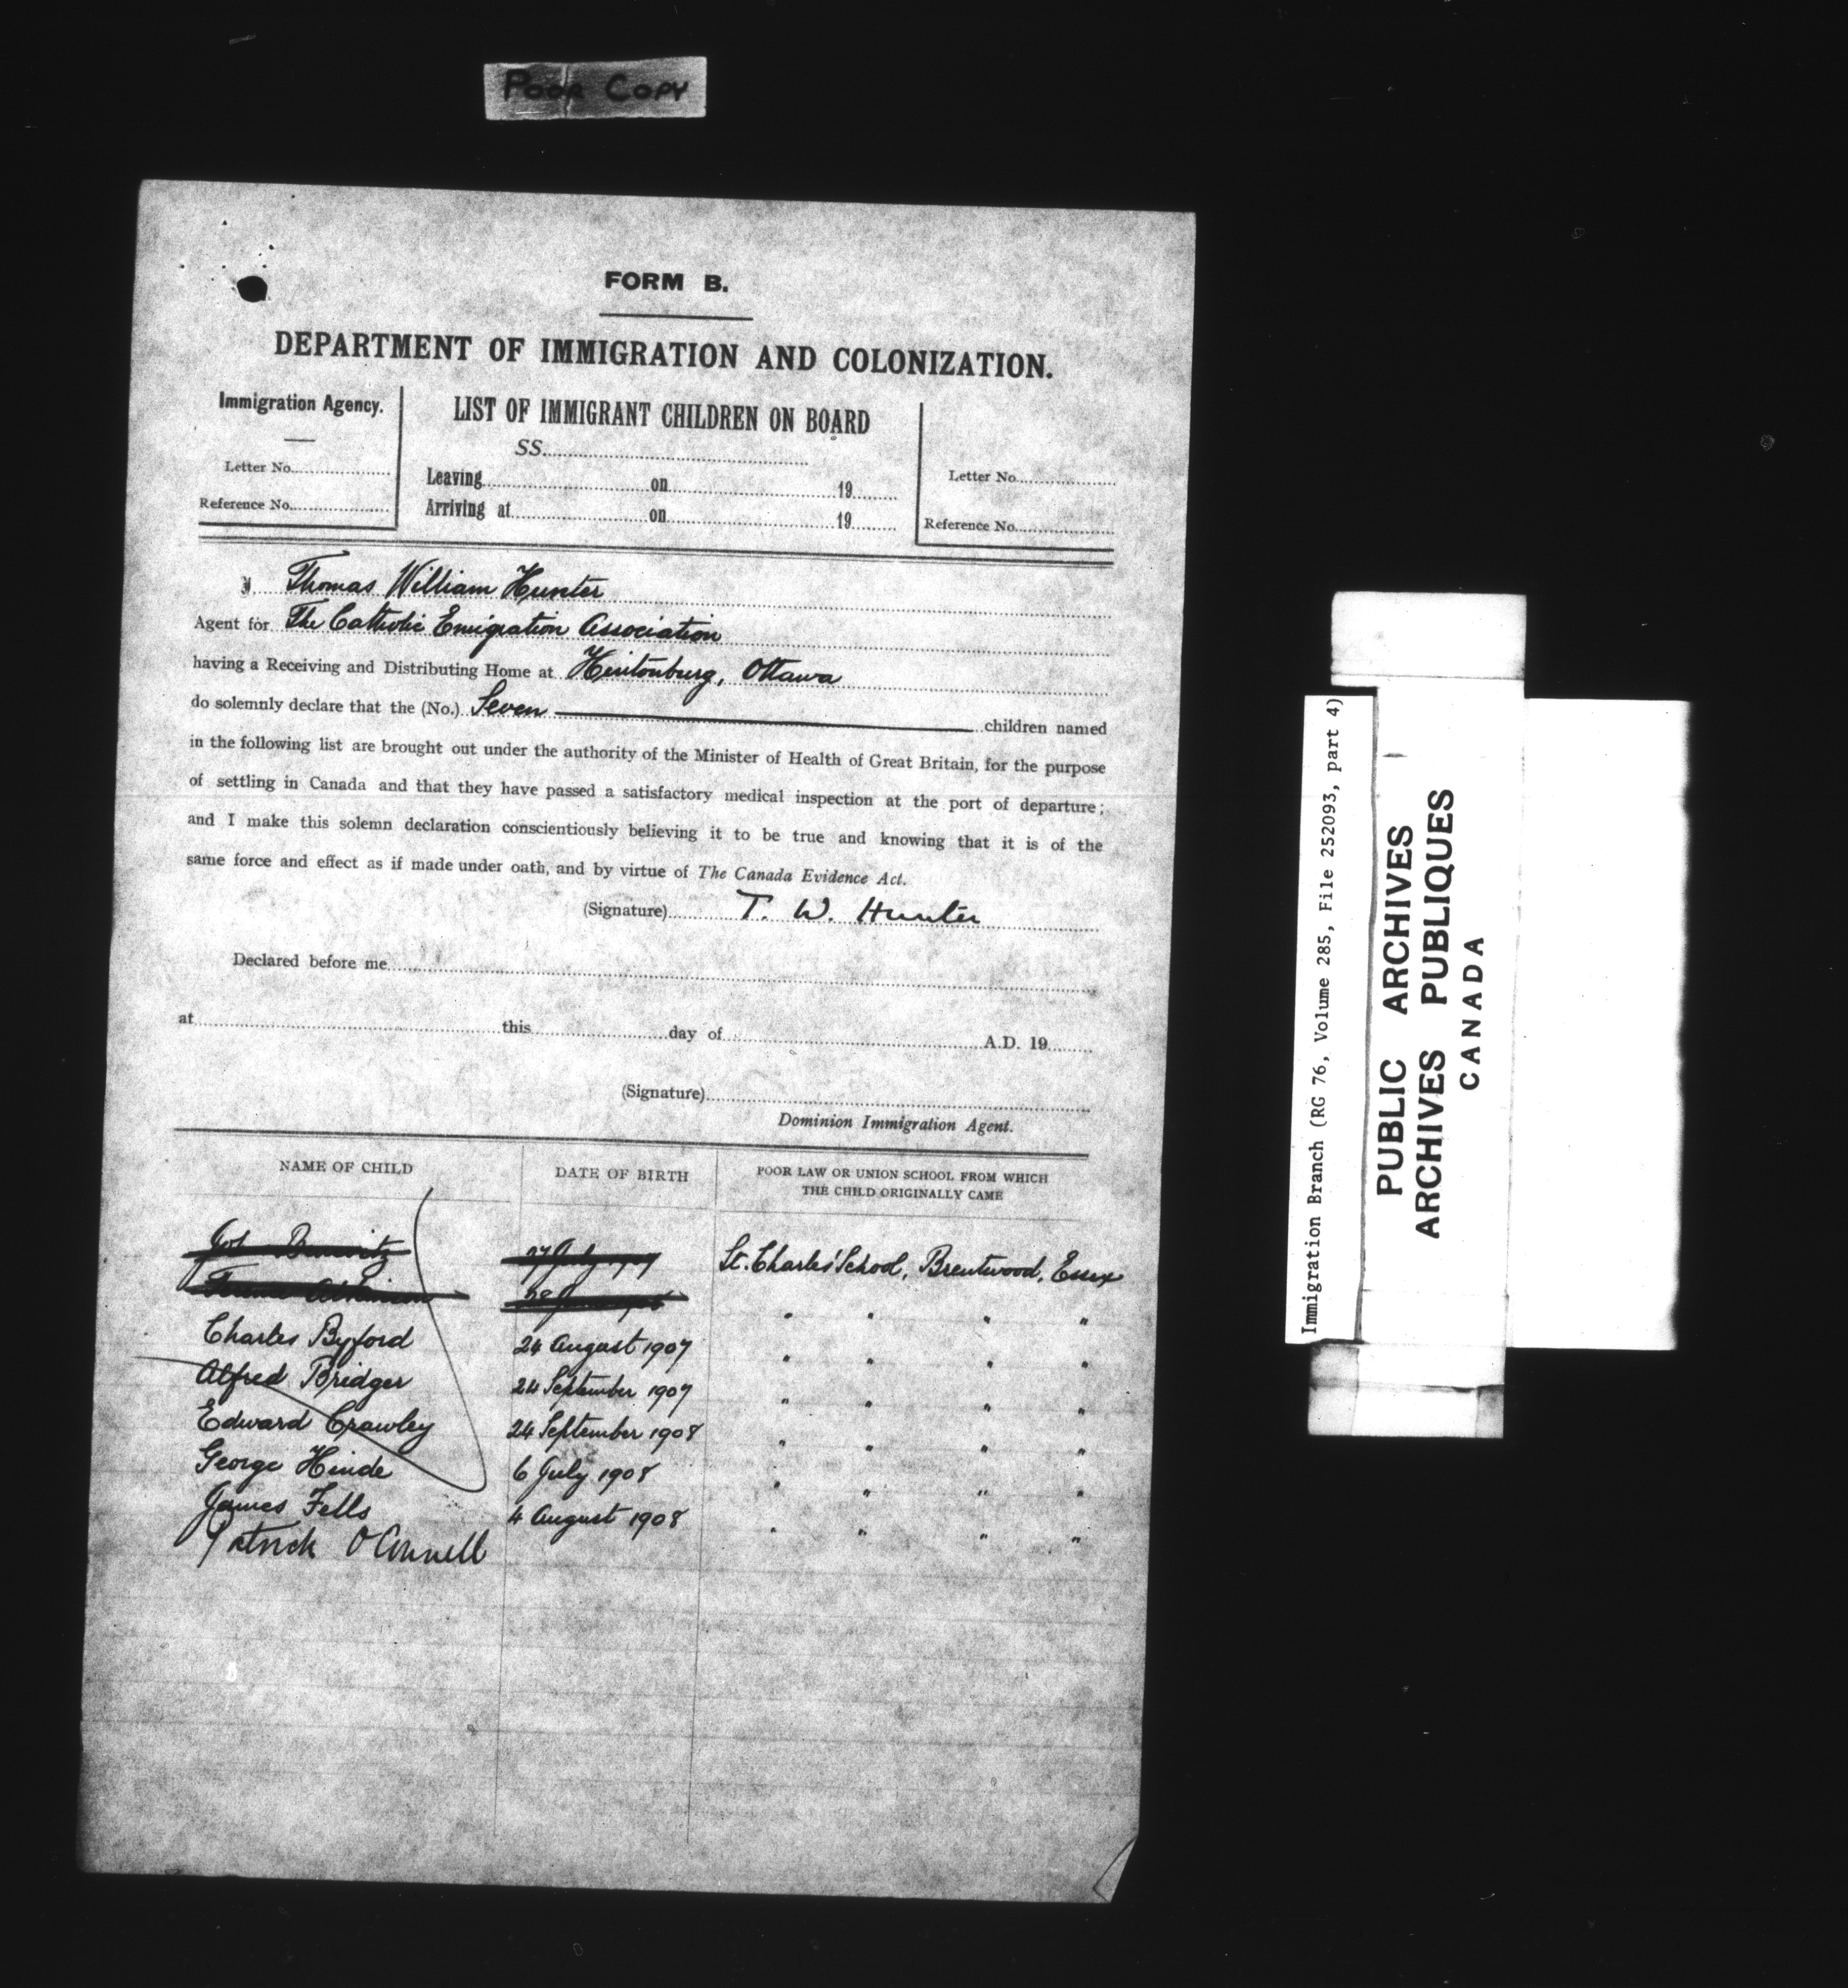 POOR COPY
FORM B.
DEPARTMENT OF IMMIGRATION AND COLONIZATION.
Immigration Agency.
Letter No.
Reference No.
LIST OF IMMIGRANT CHILDREN ON BOARD
SS.
Leaving on 19
Arriving at on 19
Letter No.
Reference No.
I, Thomas William Hunter
Agent for The Catholic Emigration Association
having a Receiving and Distributing Home at Hintonburg, Ottawa
do solemnly declare that the (No.) Seven children named
in the following list are brought out under the authority of the Minister of Health of Great Britain, for the purpose
of settling in Canada and that they have passed a satisfactory medical inspection at the port of departure;
and I make this solemn declaration conscientiously believing it to be true and knowing that it is of the
same force and effect as if made under oath, and by virtue of The Canada Evidence Act.
(Signature) T. W. Hunter
Declared before me
at this day of A.D. 19
(Signature)
Dominion Immigration Agent.
NAME OF CHILD DATE OF BIRTH POOR LAW OR UNION SCHOOL FROM WHICH
THE CHILD ORIGINALLY CAME
St. Charles' School, Brentwood, Essex
" " " "
Charles Byford 24 August 1907 " " " "
Alfred Bridger 24 September 1907 " " " "
Edward Crawley 24 September 1908 " " " "
George Hinde 6 July 1908 " " " "
James Fells 4 August 1908 " " " "
Patrick O'Connell
Immigration Branch (RG 76, Volume 285, File 252093, part 4)
PUBLIC ARCHIVES
ARCHIVES PUBLIQUES
CANADA